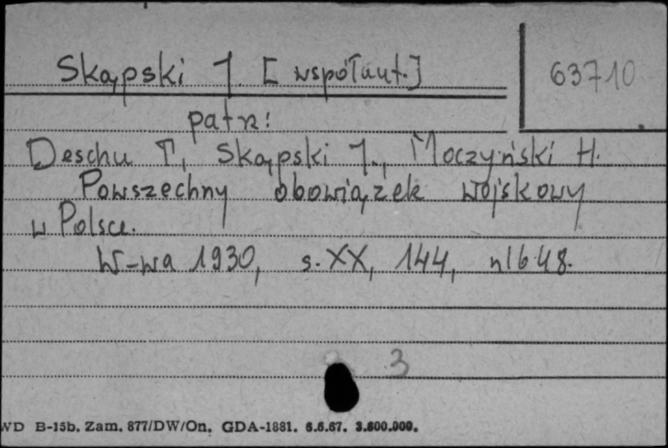 Skąpski J. [współaut.] 63710
patrz:
Deschu T, Skąpski J., Moczyński H.
Powszechny obowiązek wojskowy
w Polsce.
W-wa 1930, s. XX, 144, nlb 48.
3
WD B-15b. Zam. 877/DW/On. GDA-1881. 6.6.67. 3.600.000.